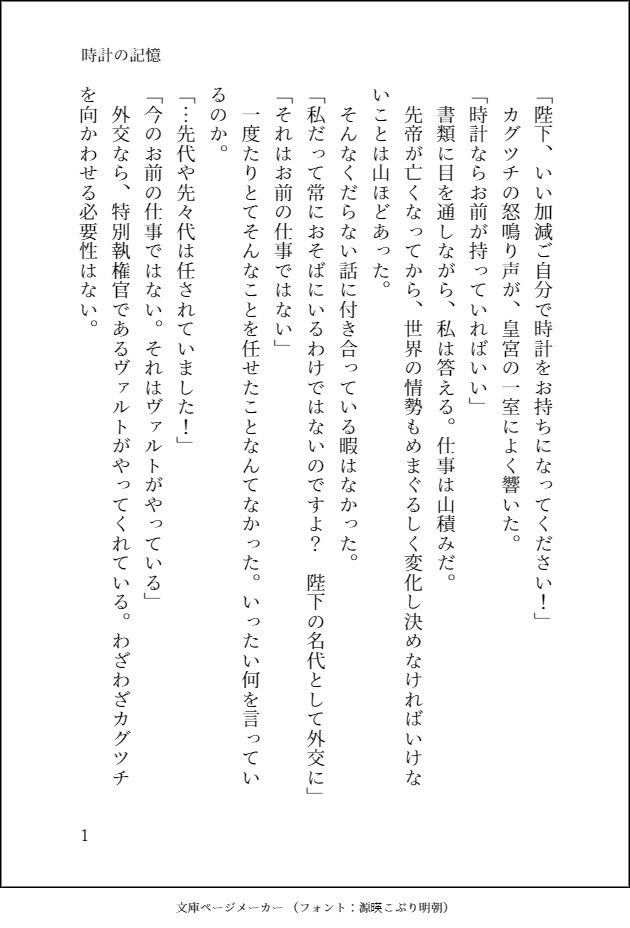 時計の記憶
「陛下、いい加減ご自分で時計をお持ちになってください！」
　カグツチの怒鳴り声が、皇宮の一室によく響いた。
「時計ならお前が持っていればいい」
　書類に目を通しながら、私は答える。仕事は山積みだ。
　先帝が亡くなってから、世界の情勢もめまぐるしく変化し決めなければいけな
いことは山ほどあった。
　そんなくだらない話に付き合っている暇はなかった。
「私だって常におそばにいるわけではないのですよ？　陛下の名代として外交に」
「それはお前の仕事ではない」
　一度たりとてそんなことを任せたことなんてなかった。いったい何を言ってい
るのか。
「…先代や先々代は任されていました！」
「今のお前の仕事ではない。それはヴァルトがやっている」
　外交なら、特別執権官であるヴァルトがやってくれている。わざわざカグツチ
を向かわせる必要性はない。
1
文庫ページメーカー （フォント：源暎こぶり明朝）